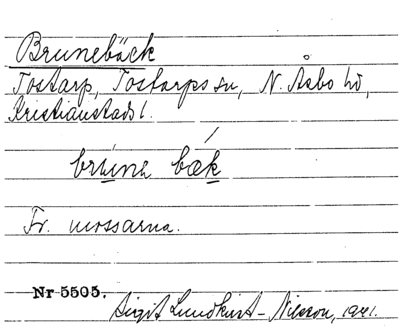 Brunebäck
Tostarp, Tostarps sn, N. Åsbo hd,
Kristianstads l.
brúnə bǽk
Fr. mossarna.
Nr 5505. Birgit Lundkvist-Nilsson, 1941.